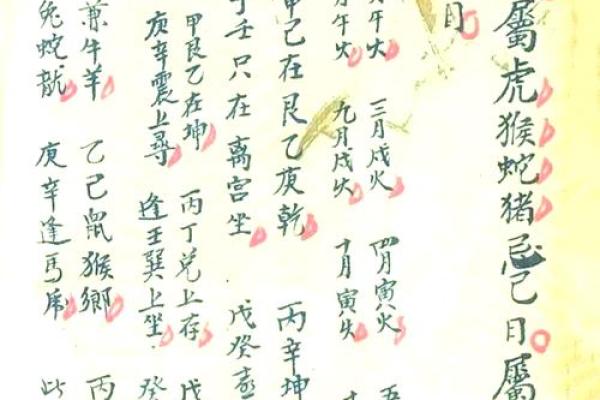 屬虎猴蛇猪忌己日屬
月
月午火 三月戌火 四月寅火 五
月午火 九月戌火 十月寅火 十
甲己在艮乙庚乾 丙辛坤
丁壬只在离宫坐 戊癸
甲艮乙在坤 丙丁兑上存 戊
庚辛震上尋 逢壬巽上坐 癸
兼牛羊 乙己鼠猴鄉 丙
兔蛇龍 庚辛逢馬虎 此